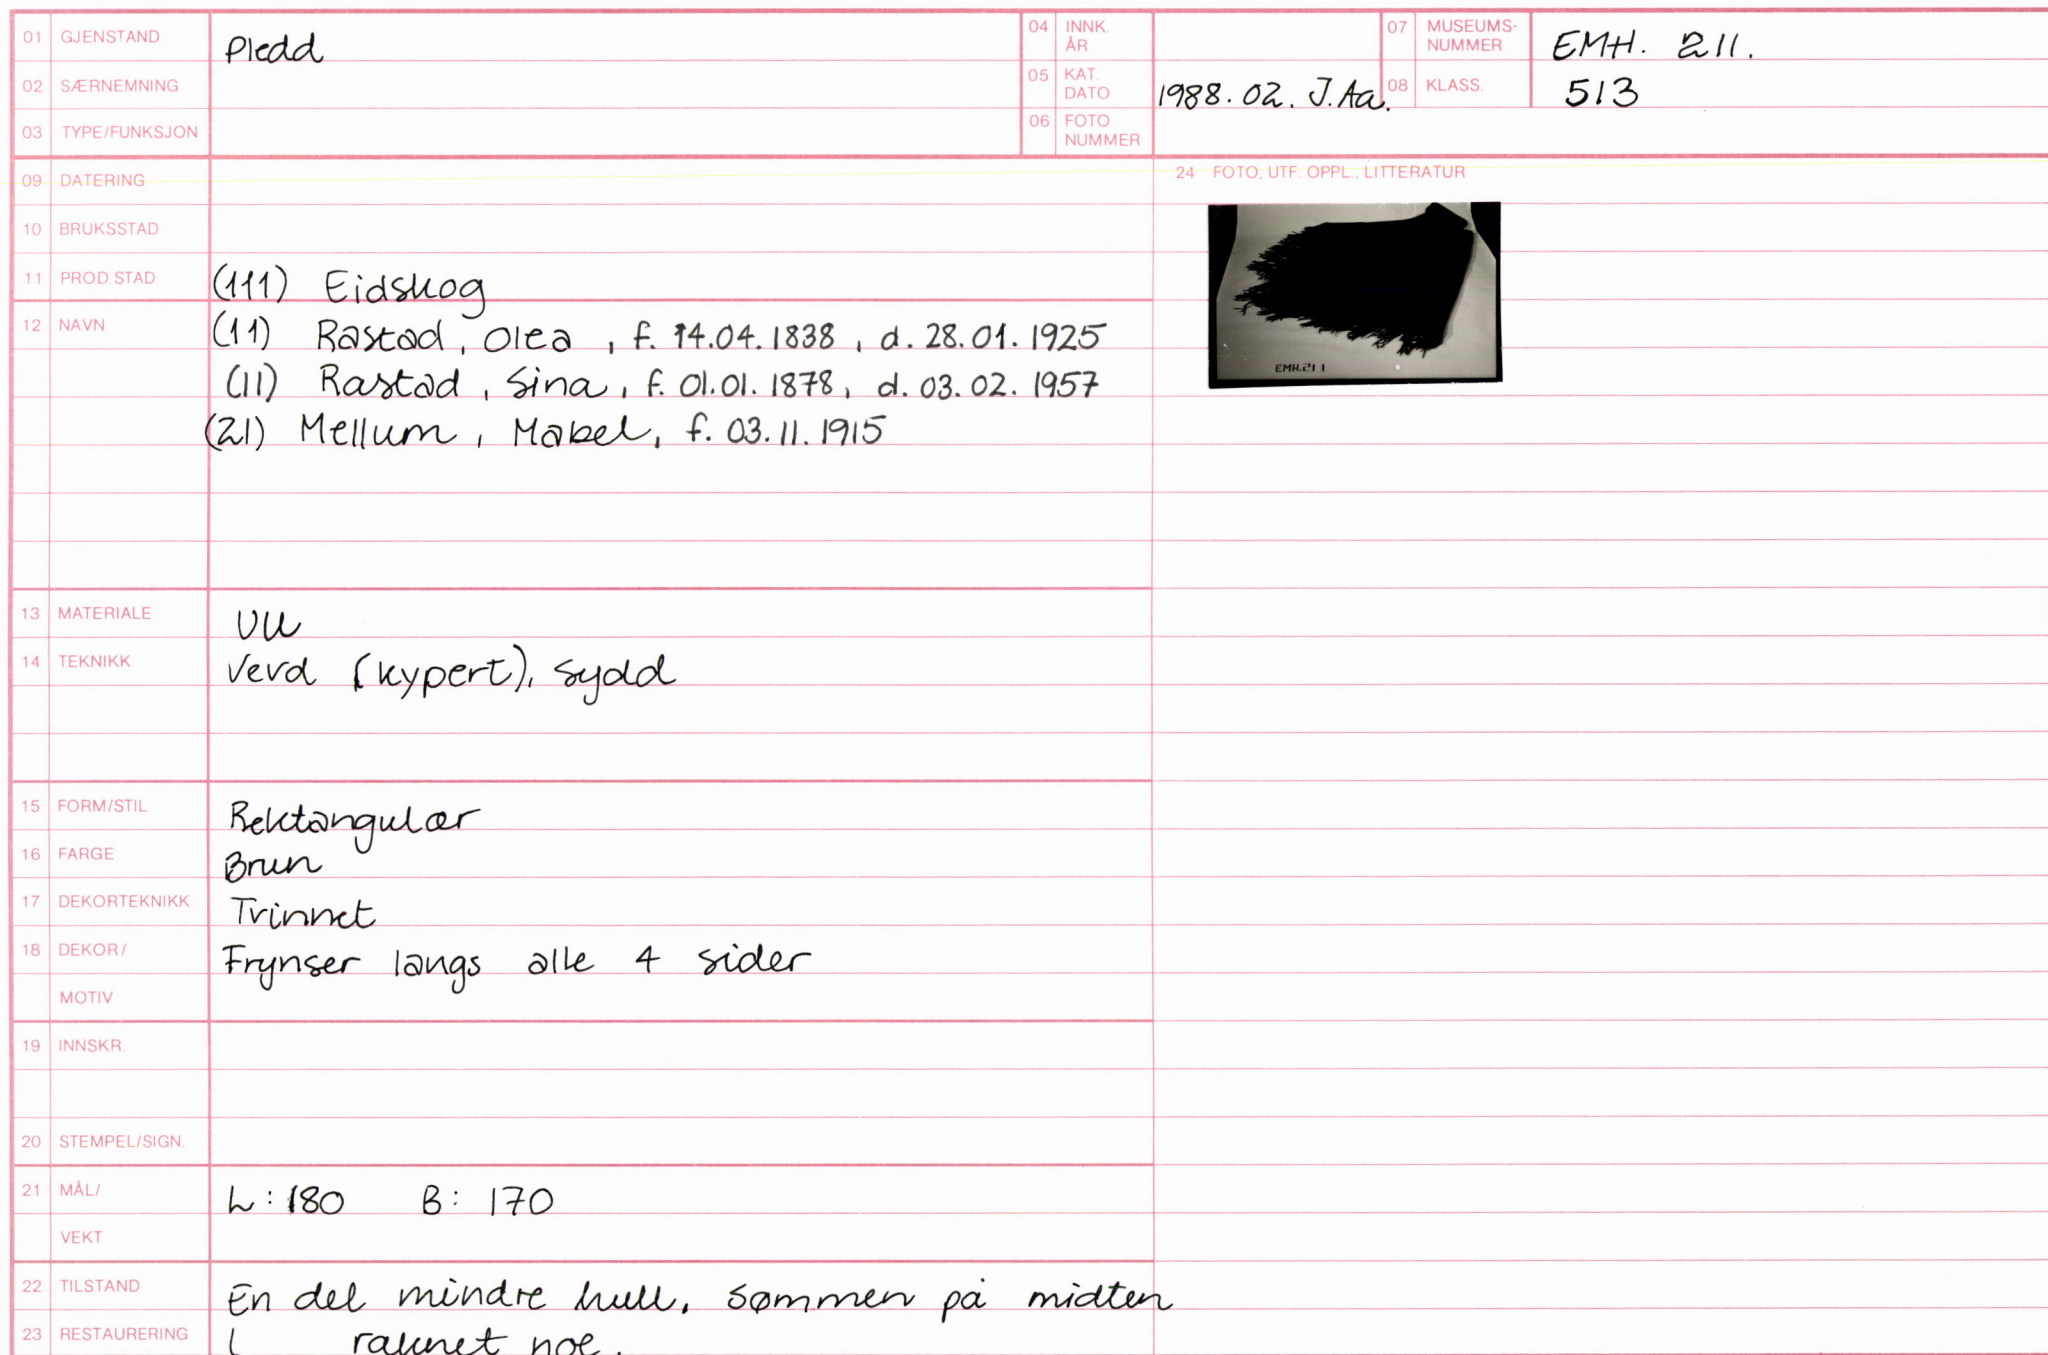 01 GJENSTAND Pledd
02 SÆRNEMNING
03 TYPE/FUNKSJON
04 INNK. ÅR
05 KAT. DATO 1988.02. J.Aa.
06 FOTO NUMMER
07 MUSEUMS-NUMMER EMH. 211.
08 KLASS. 513
09 DATERING
10 BRUKSSTAD
11 PROD.STAD (111) Eidskog
12 NAVN (11) Rastad, Olea, f. 14.04.1838, d. 28.01.1925
(11) Rastad, Sina, f. 01.01.1878, d. 03.02.1957
(21) Mellum, Mabel, f. 03.11.1915
13 MATERIALE Ull
14 TEKNIKK Vevd (kypert), sydd
15 FORM/STIL Rektangulær
16 FARGE Brun
17 DEKORTEKNIKK Trinnet
18 DEKOR/ Frynser langs alle 4 sider
MOTIV
19 INNSKR.
20 STEMPEL/SIGN.
21 MÅL/ L: 180 B: 170
VEKT
22 TILSTAND En del mindre hull, sømmen på midten
23 RESTAURERING raknet noe.
24 FOTO, UTF. OPPL., LITTERATUR
EMH.211